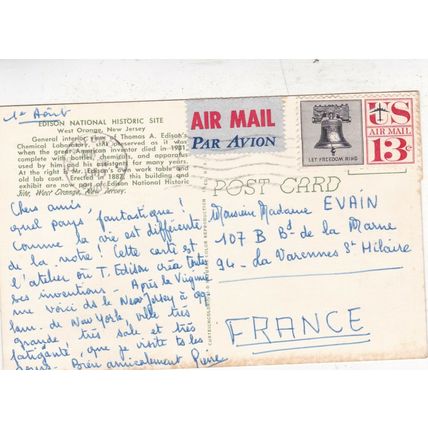 1er Août
EDISON NATIONAL HISTORIC SITE
West Orange, New Jersey
General interior view of Thomas A. Edison's
Chemical Laboratory, still preserved as it was
when the great American inventor died in 1931,
complete with bottles, chemicals, and apparatus
used by him and his assistants for many years.
At the right is Mr. Edison's own work table and
lab coat. Erected in 1887, this building and
exhibit are now part of Edison National Historic
Site, West Orange, New Jersey.
AIR MAIL
PAR AVION
LET FREEDOM RING
US
AIR MAIL
13c
POST CARD
Chers amis,
quel pays fantastique !
Comme la vie est différente
de la nôtre ! Cette carte est
l'atelier où T. Edison créa toutes
ses inventions - Après la Virginie
me voici ds le New Jersey à 90
km. de New York, ville très
grande, très sale et très
fatigante, que je visite ts les
jours. Bien amicalement Pierre
Monsieur Madame EVAIN
107 B Bd de la Marne
94 - La Varennes St Hilaire
FRANCE